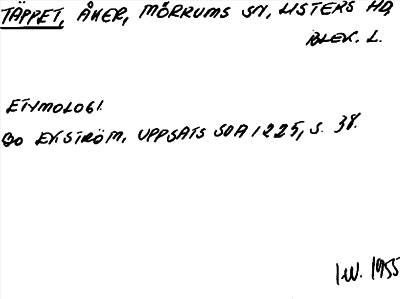 TÄPPET, ÅKER, MÖRRUMS SN, LISTERS HD,
BLEK. L.
ETYMOLOGI.
EKSTRÖM, UPPSATS SOA 1225, S. 38.
IW. 1955